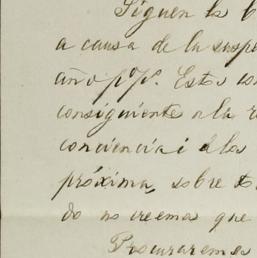 Siguen la
a causa de la susp
año ppº. Esta co
consiguiente a la r
conciencia i a la
próxima, sobre to
do no creemos que
Procuraremos